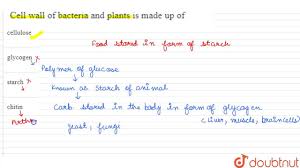 Cell wall of bacteria and plants is made up of
cellulose
Food stored in form of starch
glycogen x
Polymer of glucose
Known as starch of animal
starch x
Carb stored in the body in form of glycogen
chitin
(liver, muscle, brain cells)
yeast, fungi
doubtnut